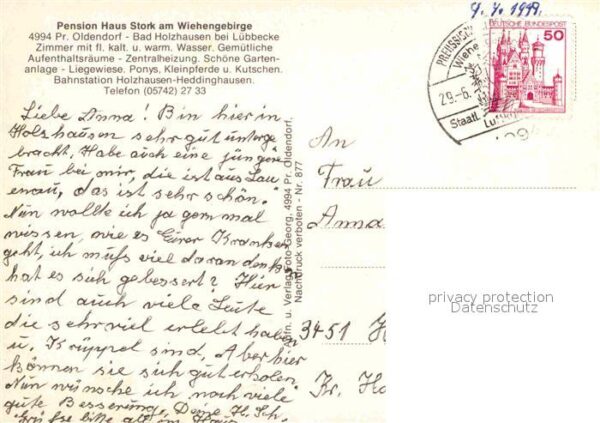 Pension Haus Stork am Wiehengebirge
4994 Pr. Oldendorf - Bad Holzhausen bei Lübbecke
Zimmer mit fl. kalt. u. warm. Wasser. Gemütliche
Aufenthaltsräume - Zentralheizung. Schöne Garten-
anlage - Liegewiese. Ponys, Kleinpferde u. Kutschen.
Bahnstation Holzhausen-Heddinghausen.
Telefon (05742) 27 33
Liebe Anna! Bin hier in
Holzhausen sehr gut unterge
bracht, Habe auch eine jüngere
Frau bei mir, die ist aus Lau
enau, das ist sehr schön."
Nun wollte ich ja gern mal
wissen, wie es Eurer Kranken
geht, ich muß viel daran denken
hat es sich gebessert? Hier
sind auch viele Leute
die sehr viel erlebt haben
u. Krüppel sind, Aber hier
können sie sich gut erholen
Nun wünsche ich noch viele
gute Besserung, Deine H. Sch.
Grüße bitte all im Haus
Aufn. u. Verlag Foto Georg, 4994 Pr. Oldendorf,
Nachdruck verboten - Nr. 877
DEUTSCHE BUNDESPOST
50
PREUSSISCH
Wiehe
29.-6.
Staatl.
Luftku
An
Frau
Anna
3451 H
Kr. Ho
privacy protection
Datenschutz